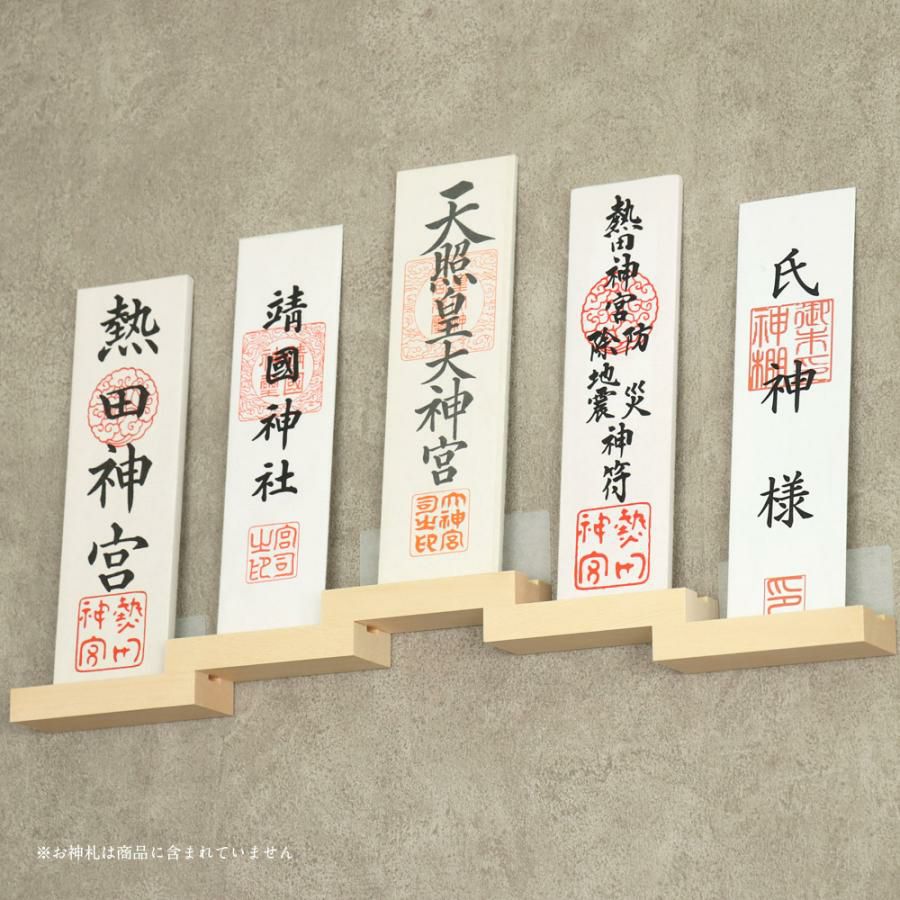 熱田神宮
熱田
神宮
靖國神社
宮司
之印
天照皇大神宮
大神宮
司之印
熱田神宮防災神符
除地震
熱田
神宮
氏神様
神棚
印
※お神札は商品に含まれていません